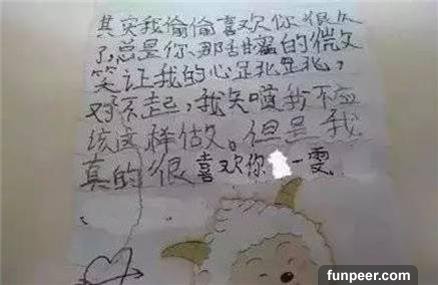 其实我偷偷喜欢你很久
了,总是你那甜蜜的微
笑让我的心跳跳,
对不起,我知道我不应
该这样做。但是我
真的很喜欢你 一雯
funpeer.com